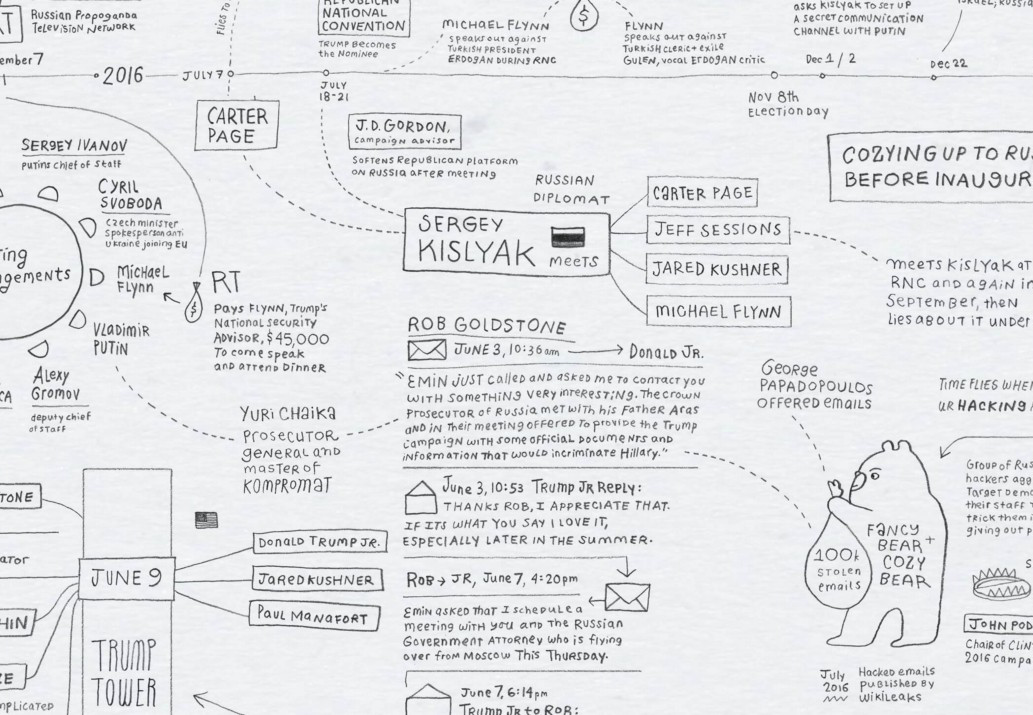 Russian Propoganda
Television Network
2016
JULY 7
REPUBLICAN
NATIONAL
CONVENTION
TRUMP Becomes
the Nominee
JULY
18-21
MICHAEL FLYNN
speaks out against
Turkish PRESIDENT
ERDOGAN DURING RNC
$
FLYNN
Speaks out against
Turkish cleric + exile
GULEN, vocal ERDOGAN critic
asks Kislyak to set up
A secret communication
CHANNEL WITH PUTIN
Dec 1 / 2
Dec 22
Nov 8th
Election Day
CARTER
PAGE
J.D. GORDON,
campaign advisor
SOFTENS REPUBLICAN PLATFORM
ON RUSSIA AFTER MEETING
COZYING UP TO
BEFORE
SERGEY IVANOV
putins chief of staff
CYRIL
SVOBODA
Czech minister
Spokesperson anti
Ukraine joining EU
MICHAEL
FLYNN
VLADIMIR
PUTIN
Alexy
Gromov
deputy chief
of staff
$
RT
PAYS FLYNN, Trump's
National security
Advisor, $45,000
To come speak
and attend Dinner
RUSSIAN
DIPLOMAT
SERGEY
KISLYAK
MEETS
CARTER PAGE
JEFF SESSIONS
JARED KUSHNER
MICHAEL FLYNN
meets Kislyak at
RNC and again in
September, then
lies about it under
ROB GOLDSTONE
JUNE 3, 10:36am
Donald JR.
"Emin just called and asked me to contact you
with something very interesting. The crown
prosecutor of Russia met with his father Aras
and in their meeting offered to provide the Trump
campaign with some official documents and
information that would incriminate Hillary."
Yuri Chaika
prosecutor
general and
master of
kompromat
June 3, 10:53 Trump JR Reply:
THANKS ROB, I APPRECIATE THAT.
IF ITS WHAT YOU SAY I LOVE IT,
ESPECIALLY LATER IN THE SUMMER.
ROB → JR, June 7, 4:20pm
Emin asked that I schedule a
meeting with you and the Russian
Government Attorney who is flying
over from Moscow This Thursday.
June 7, 6:14pm
Trump Jr to ROB:
JUNE 9
DONALD TRUMP JR.
JARED KUSHNER
PAUL MANAFORT
TRUMP
TOWER
George
PAPADOPOULOS
OFFERED emails
FANCY
BEAR +
COZY
BEAR
100k
stolen
emails
TIME FLIES WHEN
UR HACKING
hackers
their staff
giving out
JOHN
Chair of
2016
July
2016
Hacked emails
published by
WikiLeaks